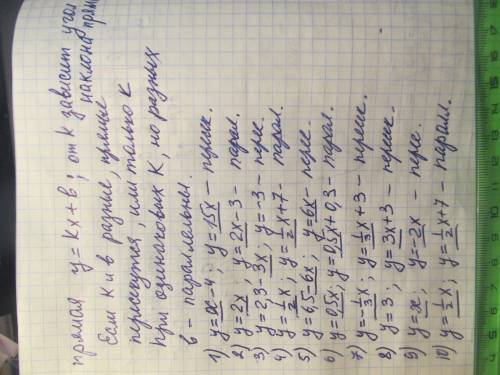 прямая y = kx + b; от k зависит угол
наклона прям
Если к и в разные, прямые
пересекутся, или только к
При одинаковых к, но разных
в - параллельны.
1) y = x - 4; y = 15x - перес.
2) y = 2x; y = 2x - 3 - парал.
3) y = 23 - 3x; y = -3 - перес.
4) y = 1/2 x; y = 1/2 x + 7 - парал.
5) y = 6,5 - 6x; y = 6x - перес.
6) y = 0,5x; y = 0,5x + 0,3 - парал.
7) y = -1/3 x; y = 1/3 x + 3 - перес.
8) y = 3; y = 3x + 3 - перес.
9) y = x; y = -2x - перес.
10) y = 1/2 x; y = 1/2 x + 7 - парал.